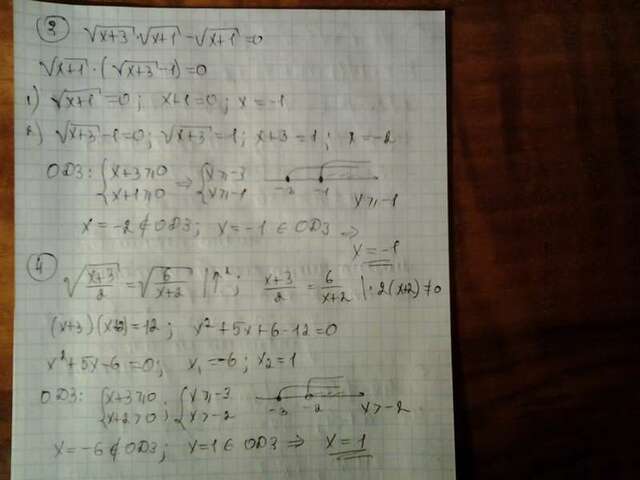 ③ √(x+3)·√(x+1) - √(x+1) = 0
√(x+1)·(√(x+3) - 1) = 0
1) √(x+1) = 0; x+1 = 0; x = -1
2) √(x+3) - 1 = 0; √(x+3) = 1; x+3 = 1; x = -2
ОДЗ: { x+3 ≥ 0 x+1 ≥ 0 ⇒ { x ≥ -3 x ≥ -1 -3 -1 x ≥ -1
x = -2 ∉ ОДЗ; x = -1 ∈ ОДЗ ⇒
x = -1
④ √((x+3)/2) = √(6/(x+2)) |↑²; (x+3)/2 = 6/(x+2) |· 2(x+2) ≠ 0
(x+3)(x+2) = 12; x² + 5x + 6 - 12 = 0
x² + 5x - 6 = 0; x₁ = -6; x₂ = 1
ОДЗ: { x+3 ≥ 0 x+2 > 0; { x ≥ -3 x > -2 -3 -2 x > -2
x = -6 ∉ ОДЗ; x = 1 ∈ ОДЗ ⇒ x = 1